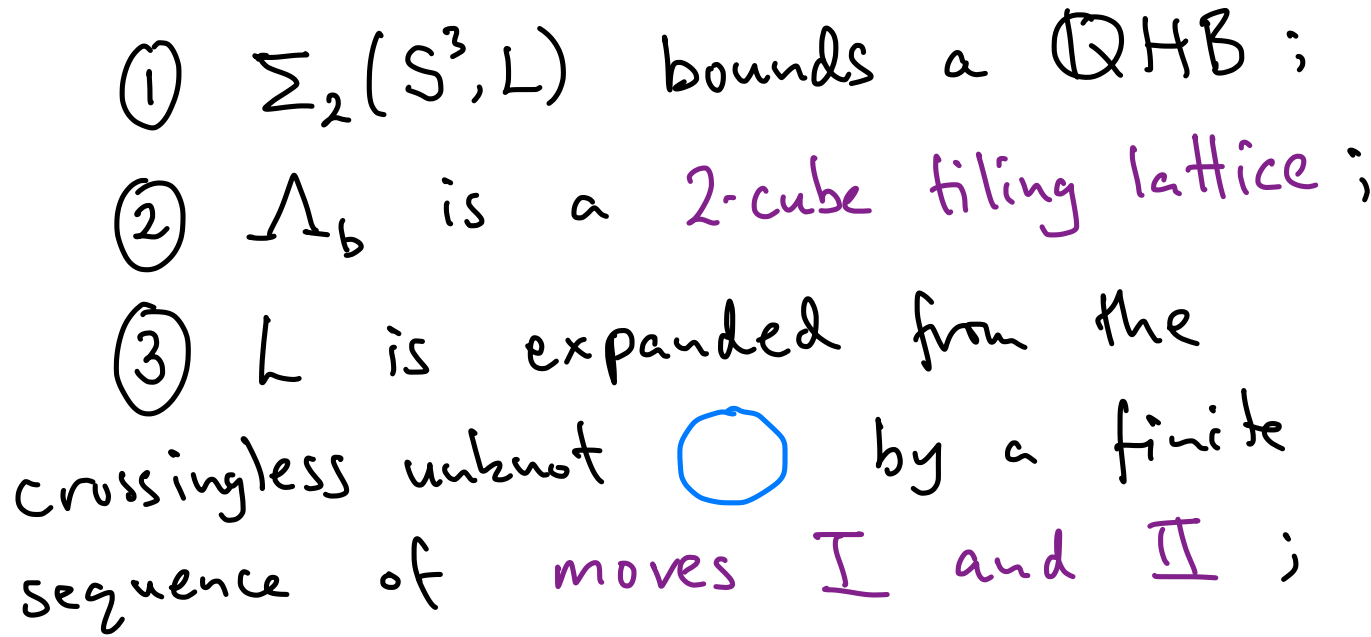 ① Σ₂(S³, L) bounds a QHB ;
② Λ_b is a 2-cube tiling lattice ;
③ L is expanded from the
crossingless unknot by a finite
sequence of moves I and II ;